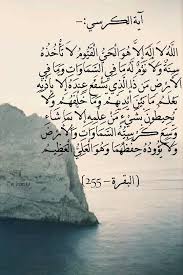 آية الكرسي:-
اللَّهُ لَا إِلَهَ إِلَّا هُوَ الْحَيُّ الْقَيُّومُ لَا تَأْخُذُهُ
سِنَةٌ وَلَا نَوْمٌ لَهُ مَا فِي السَّمَاوَاتِ وَمَا فِي
الْأَرْضِ مَنْ ذَا الَّذِي يَشْفَعُ عِنْدَهُ إِلَّا بِإِذْنِهِ
يَعْلَمُ مَا بَيْنَ أَيْدِيهِمْ وَمَا خَلْفَهُمْ وَلَا
يُحِيطُونَ بِشَيْءٍ مِنْ عِلْمِهِ إِلَّا بِمَا شَاءَ
وَسِعَ كُرْسِيُّهُ السَّمَاوَاتِ وَالْأَرْضَ
وَلَا يَئُودُهُ حِفْظُهُمَا وَهُوَ الْعَلِيُّ الْعَظِيمُ
(البقرة – 255)